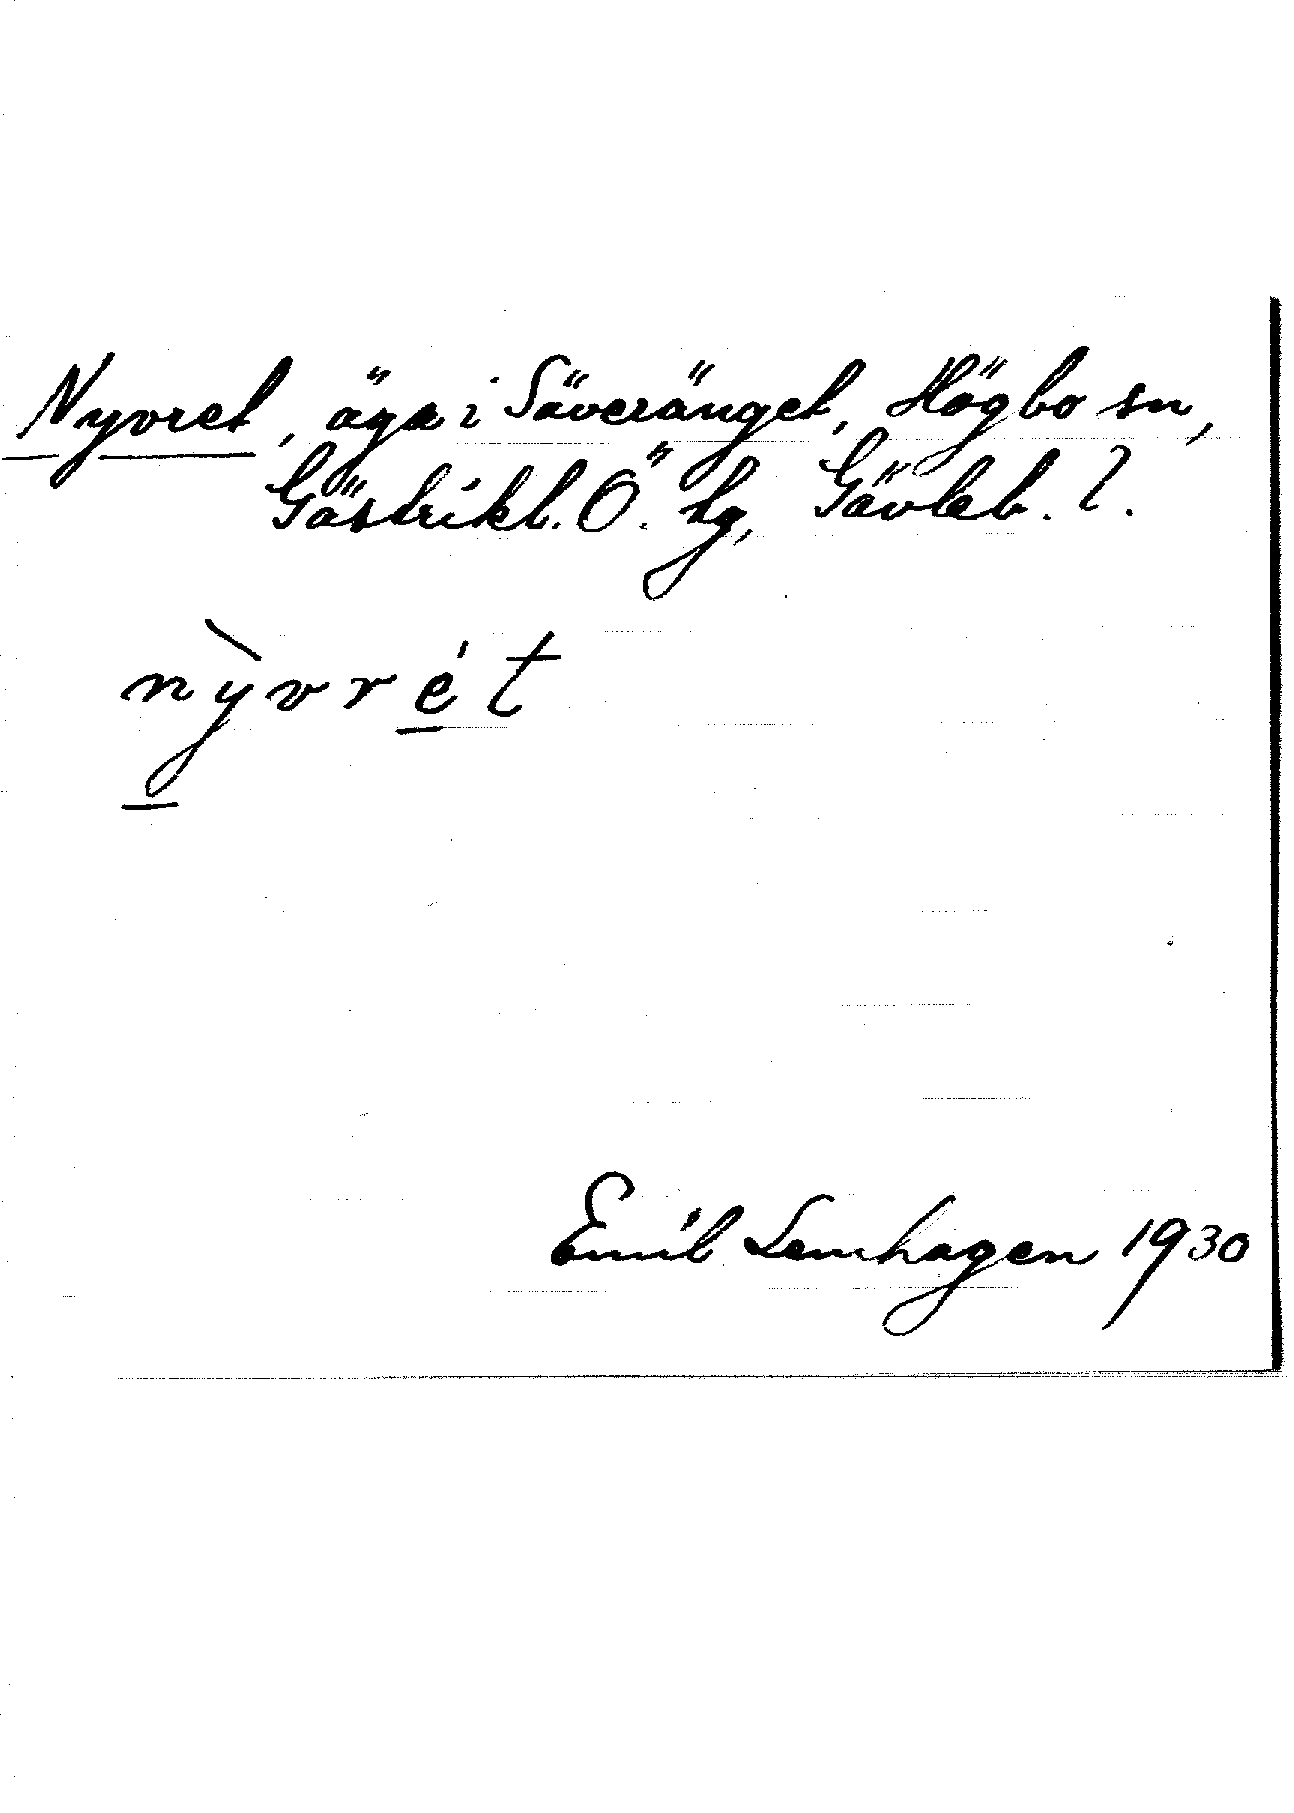 Nyvret, äga i Säveränget, Högbo sn,
Gästrikl. Ö. hg, Gävleb. l.
nỳvrét
Emil Lemhagen 1930